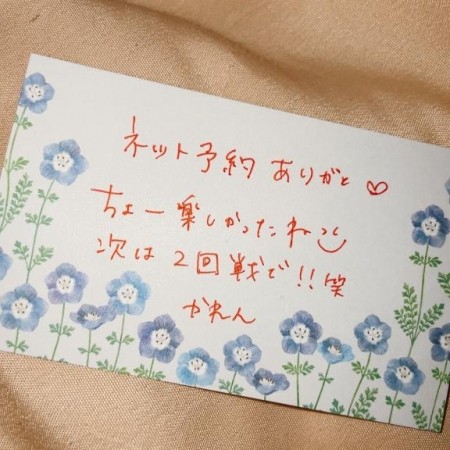 ネット予約ありがと♡
ちょー楽しかったね
次は2回戦で!!笑
かれん